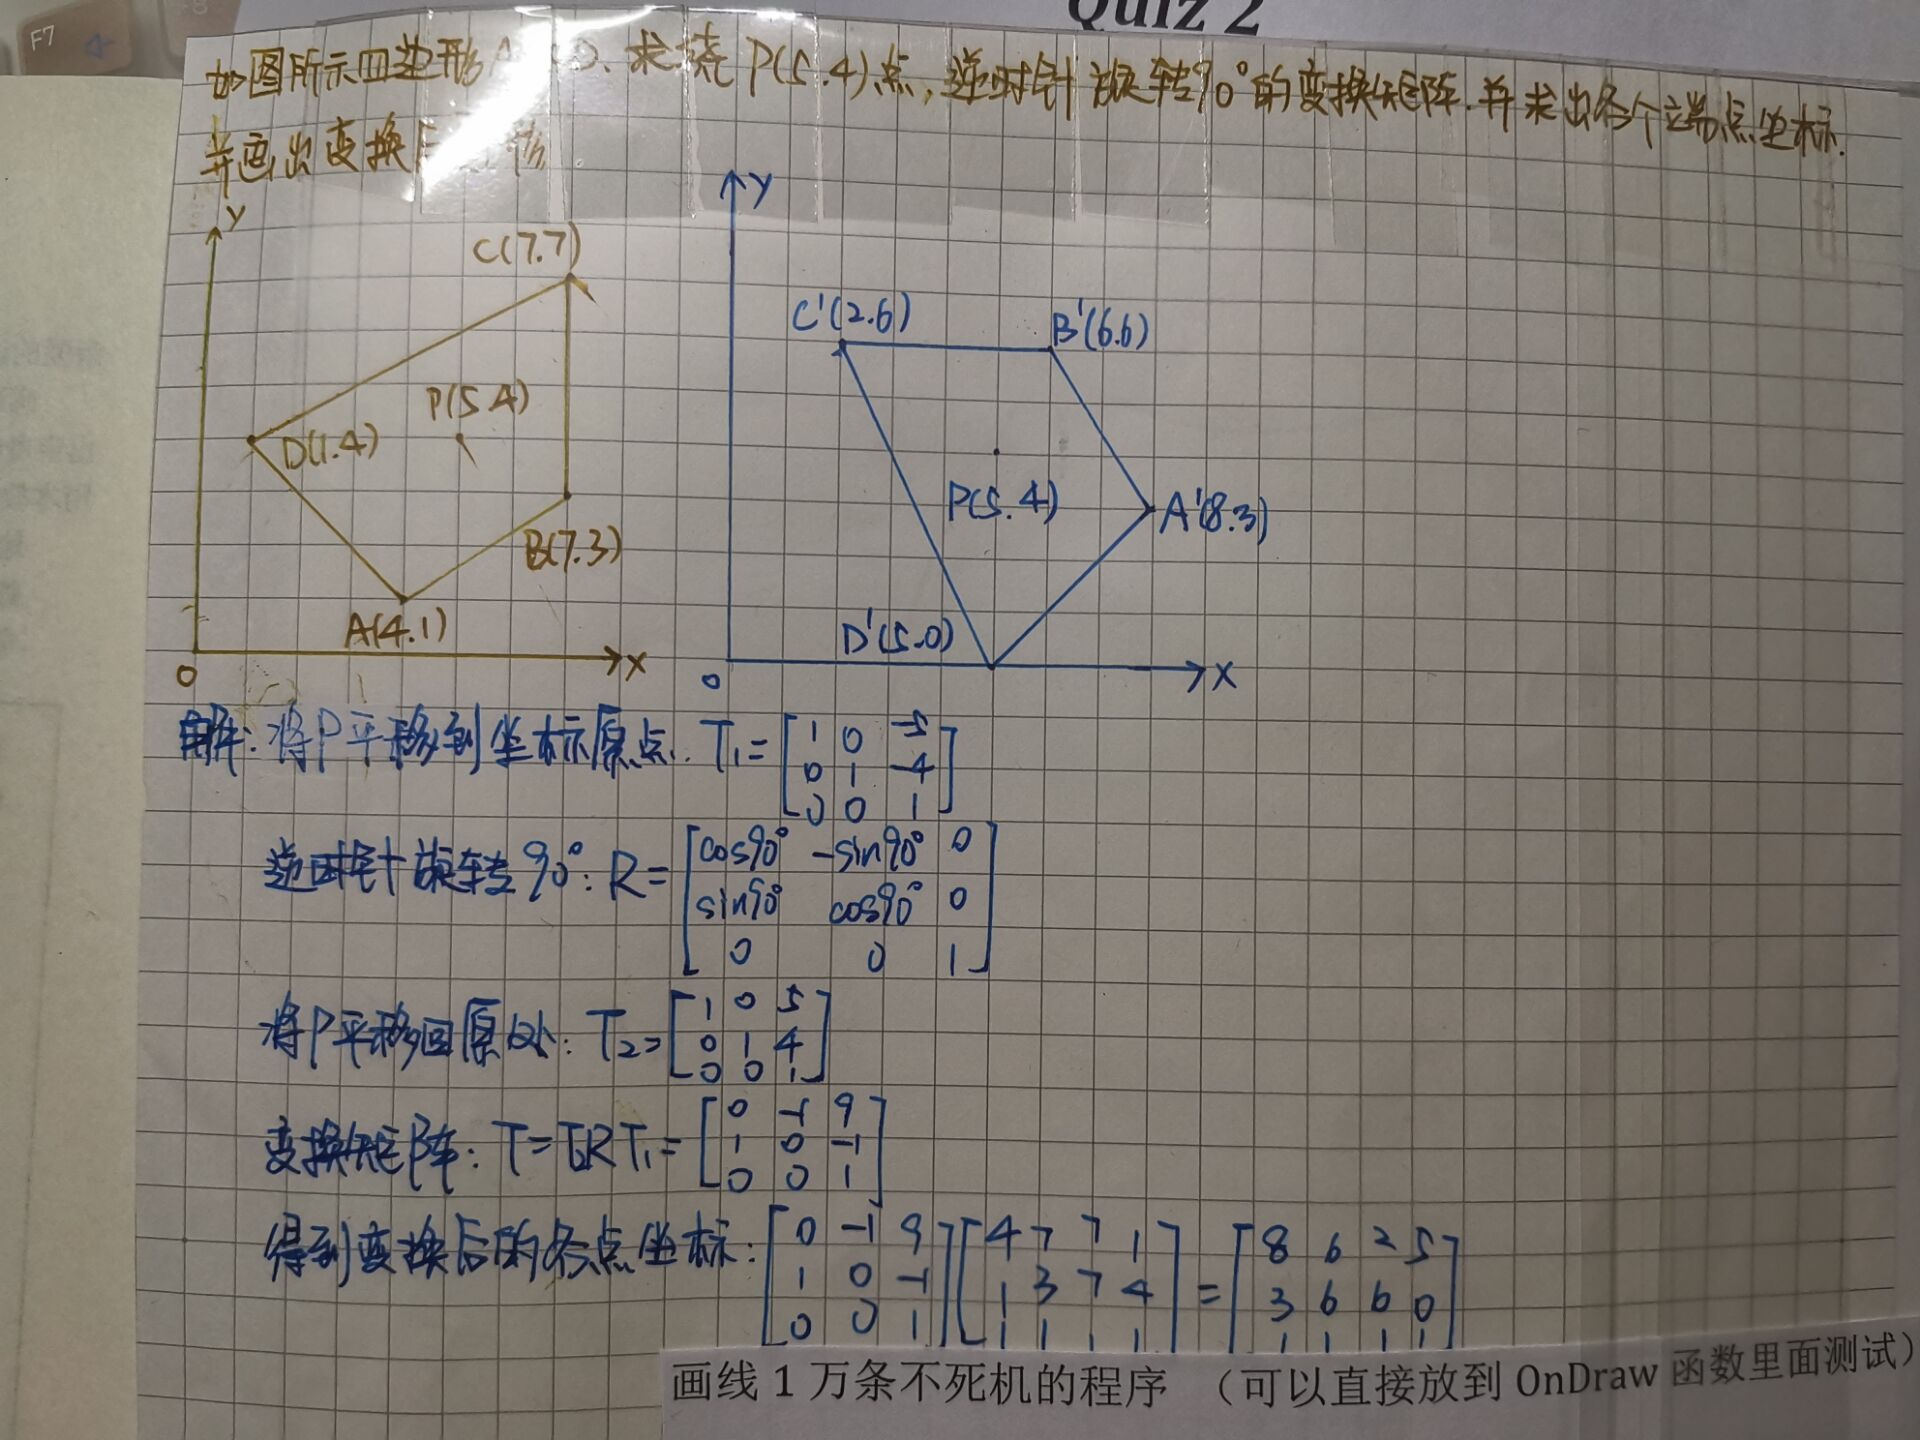 F7
Quiz 2
如图所示四边形A D.求绕P(5.4)点,逆时针旋转90°的变换矩阵.并求出各个端点坐标.
并画出变换
Y
C(7.7)
P(5.4)
D(1.4)
B(7.3)
A(4.1)
O
X
Y
C'(2.6)
B'(6.6)
P(5.4)
A'(8.3)
D'(5.0)
O
X
解:将P平移到坐标原点. T₁=[1 0 -5
0 1 -4
0 0 1]
逆时针旋转90°: R=[cos90° -sin90° 0
sin90° cos90° 0
0 0 1]
将P平移回原处: T₂=[1 0 5
0 1 4
0 0 1]
变换矩阵: T=T₂RT₁=[0 -1 9
1 0 -1
0 0 1]
得到变换后的各点坐标:[0 -1 9][4 7 7 1]=[8 6 2 5]
1 0 -1 1 3 7 4 3 6 6 0
0 0 1 1 1 1 1 1 1 1 1
画线 1 万条不死机的程序 (可以直接放到 OnDraw 函数里面测试)